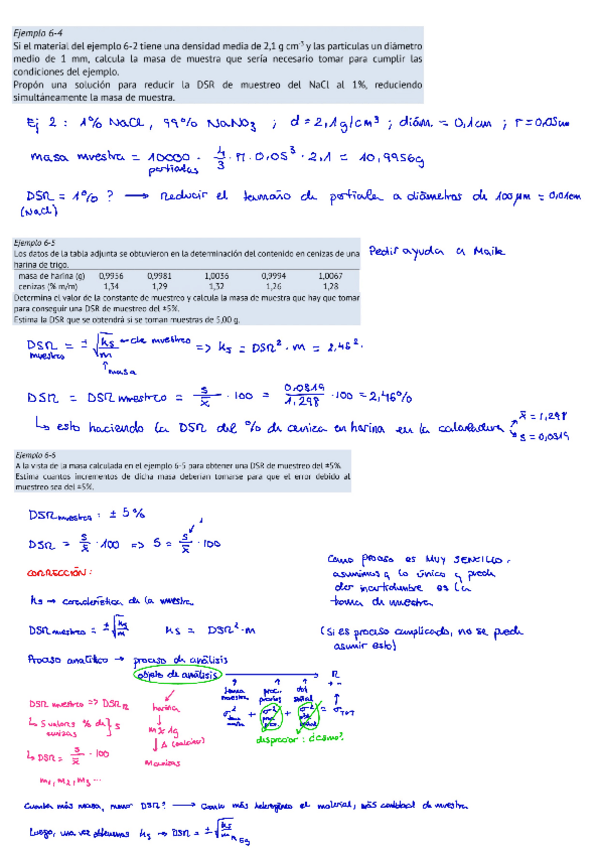 Ejemplo 6-4
Si el material del ejemplo 6-2 tiene una densidad media de 2,1 g cm⁻³ y las partículas un diámetro
medio de 1 mm, calcula la masa de muestra que sería necesario tomar para cumplir las
condiciones del ejemplo.
Propón una solución para reducir la DSR de muestreo del NaCl al 1%, reduciendo
simultáneamente la masa de muestra.
Ej 2 : 1% NaCl, 99% NaNO₃ ; d = 2,1 g/cm³ ; diám. = 0,1cm ; r = 0,05cm
masa muestra = 10000 · 4/3 · π · 0,05³ · 2,1 = 10,9956g
partículas
DSR = 1% ? → reducir el tamaño de partícula a diámetros de 100 μm = 0,01cm
(NaCl)
Ejemplo 6-5
Los datos de la tabla adjunta se obtuvieron en la determinación del contenido en cenizas de una
harina de trigo.
Pedir ayuda a Maite
masa de harina (g) 0,9956 0,9981 1,0036 0,9994 1,0067
cenizas (% m/m) 1,34 1,29 1,32 1,26 1,28
Determina el valor de la constante de muestreo y calcula la masa de muestra que hay que tomar
para conseguir una DSR de muestreo del ±5%.
Estima la DSR que se obtendrá si se toman muestras de 5,00 g.
DSR muestreo = ± √ks/m ← de muestreo => ks = DSR² · m = 2,46² ·
↑ masa
DSR = DSR muestreo = s/x̄ · 100 = 0,0319/1,298 · 100 = 2,46%
↳ esto haciendo la DSR del % de ceniza en harina en la calculadora x̄ = 1,298
s = 0,0319
Ejemplo 6-6
A la vista de la masa calculada en el ejemplo 6-5 para obtener una DSR de muestreo del ±5%.
Estima cuantos incrementos de dicha masa deberían tomarse para que el error debido al
muestreo sea del ±5%.
DSR muestreo : ± 5%
DSR = s/x̄ · 100 => s = s/x̄ · 100
CORRECCIÓN:
Como proceso es MUY SENCILLO,
asumimos q lo único q puede
dar incertidumbre es la
toma de muestra
ks → característica de la muestra.
DSR muestreo = ± √ks/m ks = DSR² · m
(Si es proceso complicado, no se puede
asumir esto)
Proceso analítico → proceso de análisis
objeto de análisis → R
toma muestra
señal
DSR muestreo => DSR R
harina
↳ 5 valores % de cenizas } s
m ≈ 1g
↓ Δ (calcino)
m cenizas
σ² + σ² + σ² = σ TOT
despreciar : ¿cómo?
↳ DSR = s/x̄ · 100
m₁, m₂, m₃ ...
Cuanta más masa, menor DSR? → Cuanto más heterogéneo el material, más cantidad de muestra
Luego, una vez obtenemos ks → DSR = ± √ks/m